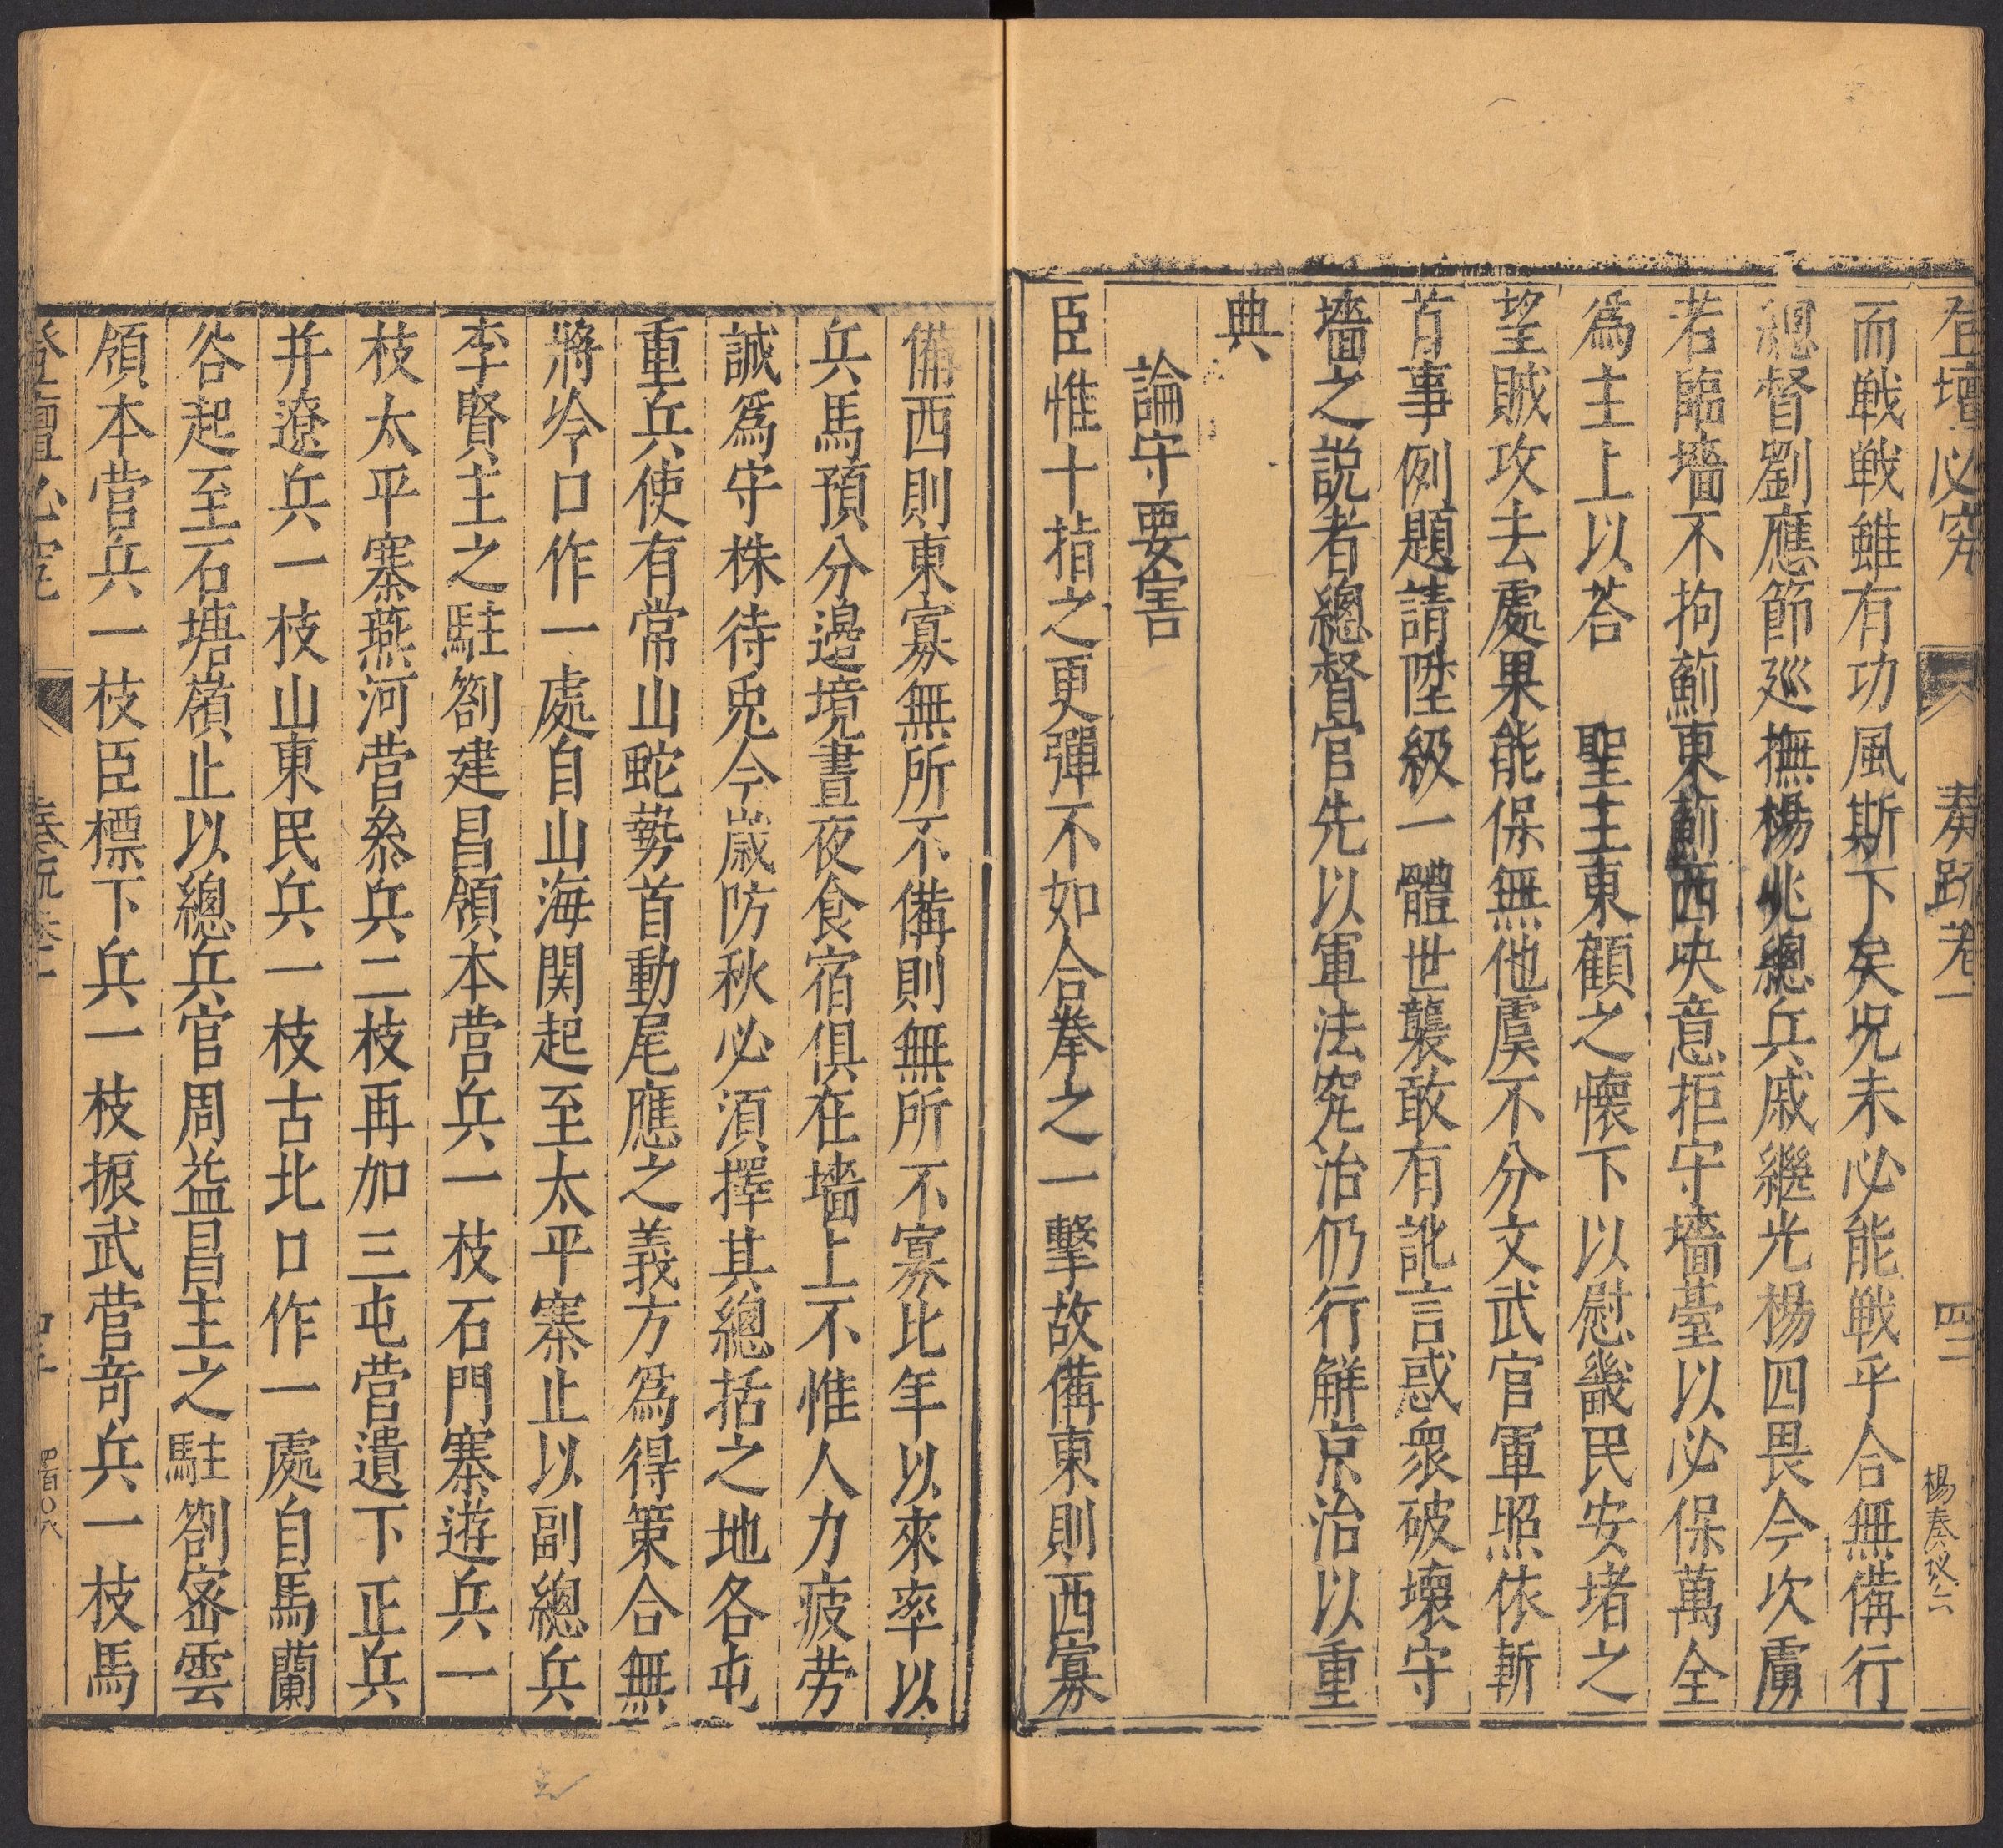 登壇必究 奏疏卷一 四二 楊奏议六
而戰戰雖有功風斯下矣况未必能戰乎合無備行
總督劉應節巡撫楊兆總兵戚繼光楊四畏今次虜
若臨墻不拘薊東薊西决意拒守墻臺以必保萬全
爲主上以荅　聖主東顧之懷下以慰畿民安堵之
望賊攻去處果能保無他虞不分文武官軍照依斬
首事例題請陞級一體世襲敢有訛言惑衆破壞守
墻之説者總督官先以軍法究治仍行觧京治以重
典
論守要害
臣惟十指之更彈不如合拳之一擊故備東則西寡
備西則東寡無所不備則無所不寡比年以來率以
兵馬預分邊境晝夜食宿俱在墻上不惟人力疲劳
誠爲守株待兎今歲防秋必須擇其總括之地各屯
重兵使有常山蛇势首動尾應之義方爲得策合無
將冷口作一處自山海関起至太平寨止以副總兵
李賢主之駐劄建昌領本营兵一枝石門寨遊兵一
枝太平寨燕河营叅兵二枝再加三屯营遺下正兵
并遼兵一枝山東民兵一枝古北口作一處自馬蘭
谷起至石塘嶺止以總兵官周益昌主之駐劄密雲
領本营兵一枝臣標下兵一枝振武营竒兵一枝馬
登壇必究 奏疏卷一 四百〇八